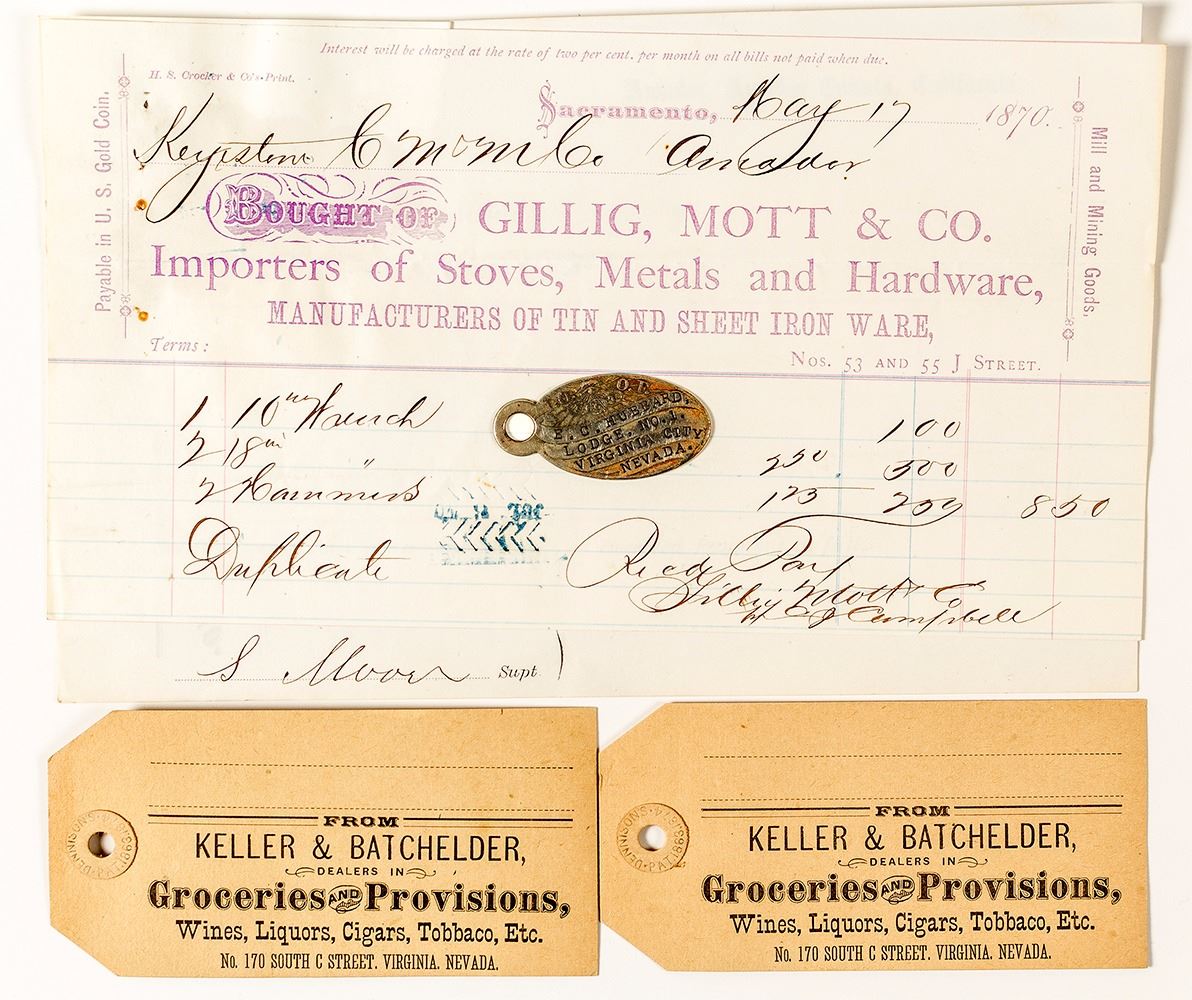 Interest will be charged at the rate of two per cent. per month on all bills not paid when due.
H. S. Crocker & Co's Print.
Sacramento, May 17 1870.
Keystone C M & M Co Amador
Payable in U. S. Gold Coin.
Mill and Mining Goods,
BOUGHT OF GILLIG, MOTT & CO.
Importers of Stoves, Metals and Hardware,
MANUFACTURERS OF TIN AND SHEET IRON WARE,
Terms:
Nos. 53 AND 55 J STREET.
1 10 in Wrench 1 00
2 18 in " 2 50 5 00
2 Hammers 1 25 2 50 8 50
Duplicate
Recd Pay
Gillig Mott & Co
C J Campbell
OF
E. C. HUBBARD,
LODGE. NO. 1.
VIRGINIA CITY
NEVADA.
S Moore Supt
FROM
KELLER & BATCHELDER,
DEALERS IN
Groceries AND Provisions,
Wines, Liquors, Cigars, Tobbaco, Etc.
No. 170 SOUTH C STREET. VIRGINIA. NEVADA.
DENNISON'S PAT. 1863 & 74
FROM
KELLER & BATCHELDER,
DEALERS IN
Groceries AND Provisions,
Wines, Liquors, Cigars, Tobbaco, Etc.
No. 170 SOUTH C STREET. VIRGINIA. NEVADA.
DENNISON'S PAT. 1863 & 74